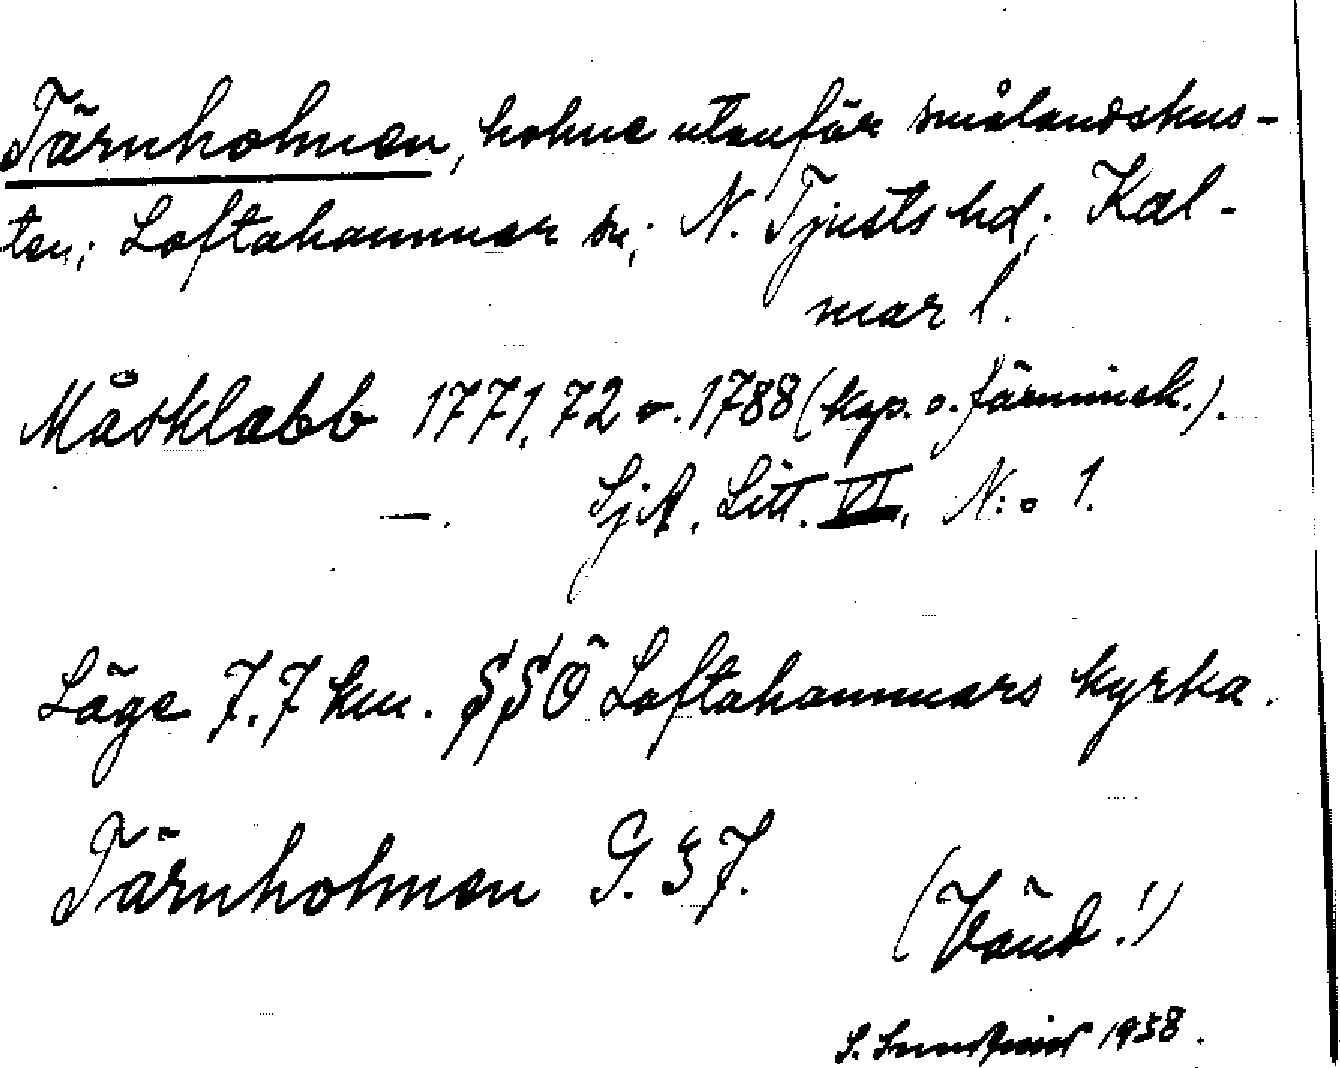 Tärnholmen, holme utanför smålandskus-
ten; Loftahammar sn; N. Tjusts hd; Kal-
mar l.
Måsklabb 1771, 72 o. 1788 (kop. o. förminsk.).
—. SjA, Litt. VI, N:o 1.
Läge 7.7 km. SSÖ Loftahammars kyrka.
Tärnholmen G. 37.
(Vänd!)
S. 1938.